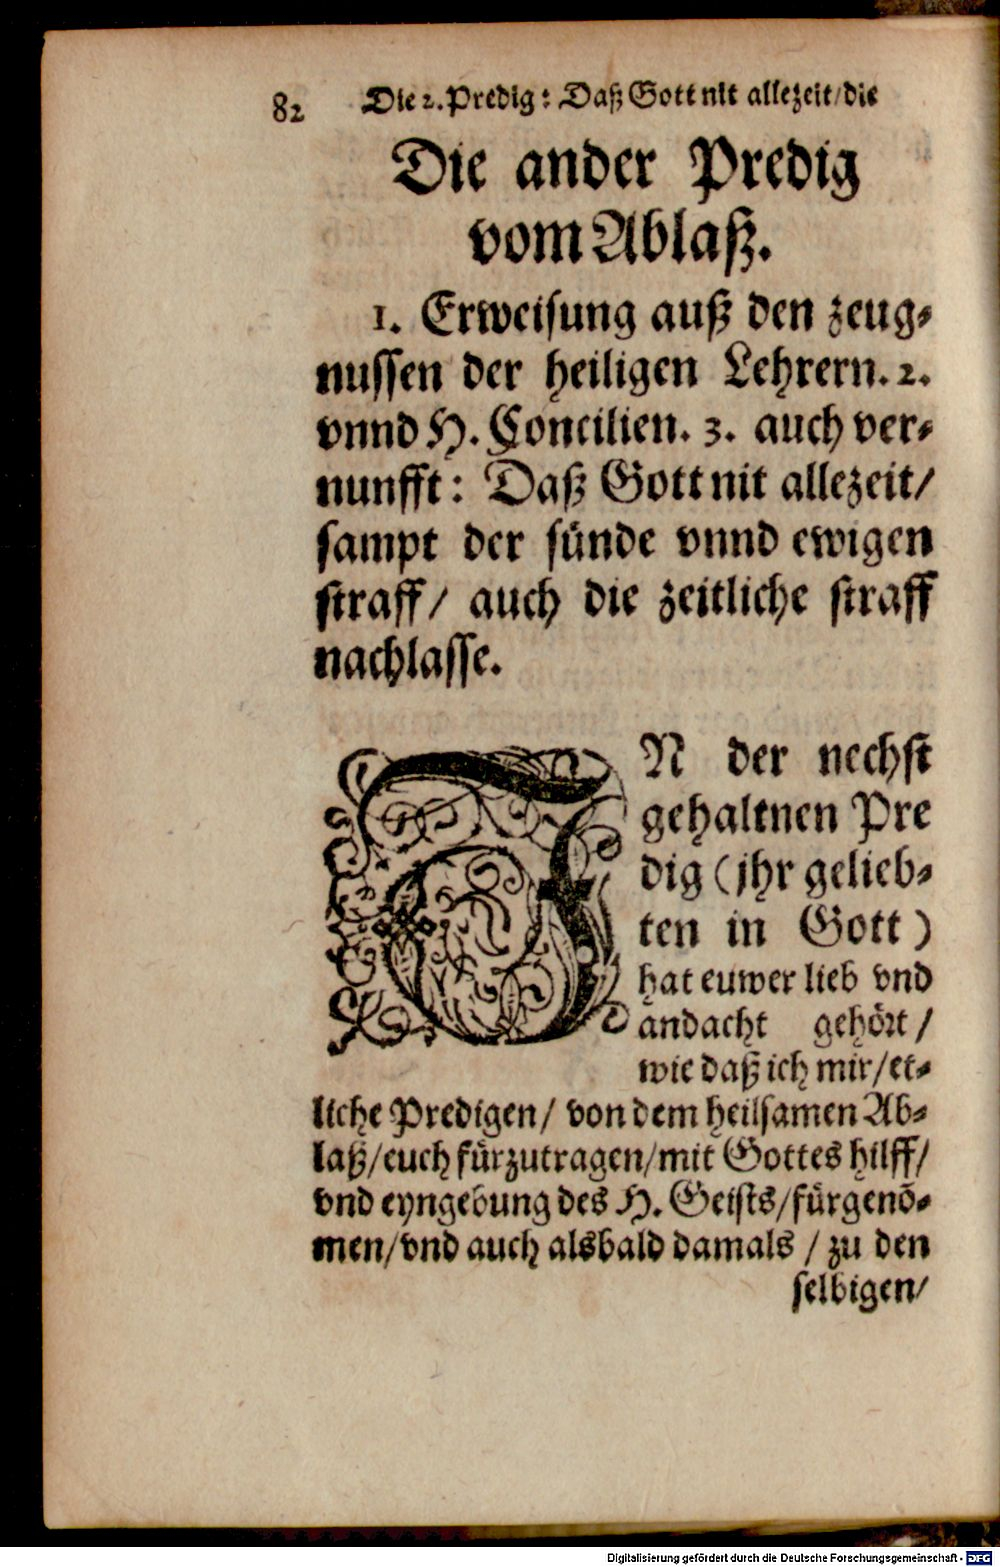 82 Die 2. Predig: Daß Gott nit allezeit/die
Die ander Predig
vom Ablaß.
1. Erweisung auß den zeug-
nussen der heiligen Lehrern. 2.
vnnd H. Concilien. 3. auch ver-
nunfft: Daß Gott nit allezeit/
sampt der sünde vnnd ewigen
straff/ auch die zeitliche straff
nachlasse.
IN der nechst
gehaltnen Pre
dig (jhr gelieb-
ten in Gott)
hat euwer lieb vnd
andacht gehört/
wie daß ich mir/et-
liche Predigen/ von dem heilsamen Ab-
laß/euch fürzutragen/mit Gottes hilff/
vnd eyngebung des H. Geists/fürgenõ-
men/vnd auch alsbald damals / zu den
selbigen/
Digitalisierung gefördert durch die Deutsche Forschungsgemeinschaft - DFG